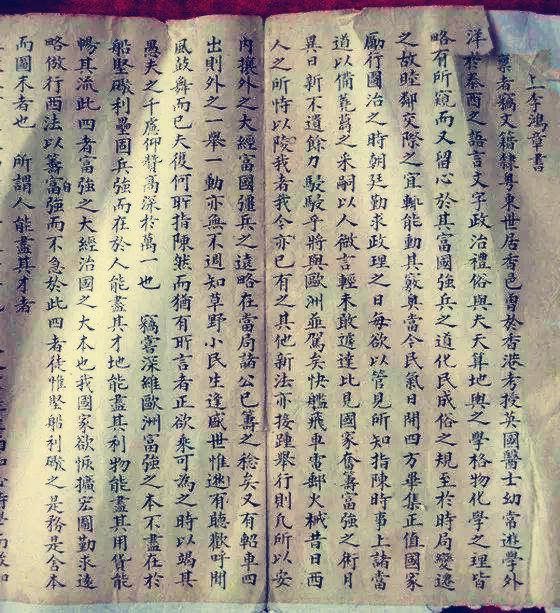 上李鴻章書
稟者竊文籍隸粵東世居香邑曾於香港考授英國醫士幼嘗遊學外
洋於泰西之語言文字政治禮俗與夫天算地輿之學格物化學之理皆
略有所窺而又留心於其富國強兵之道化民成俗之規至於時局變遷
之故睦鄰交際之宜輒能動其竅奧當今民氣日開四方畢集正值國家
勵行國治之時朝廷勤求政理之日每欲以管見所知指陳時事上諸當
道以備蕘蒭之采嗣以人微言輕未敢遽達比見國家奮籌富強之術月
異日新不遺餘力駸駸乎將與歐洲並駕矣快艦飛車電郵火械昔日西
人之所恃以陵我者我今亦已有之其他新法亦接踵舉行則凡所以安
內攘外之大經富國強兵之遠略在當局諸公已籌之稔矣又有軺車四
出則外之一舉一動亦無不週知草野小民生逢盛世惟逖有聽歡呼聞
風鼓舞而已夫復何所指陳然而猶有所言者正欲乘可為之時以竭其
愚夫之千慮仰贊高深於萬一也　竊喜深維歐洲富強之本不盡在於
船堅礮利壘固兵強而在於人能盡其才地能盡其利物能盡其用貨能
暢其流此四者富強之大經治國之大本也我國家欲恢擴宏圖勤求遠
略倣行西法以籌自富強而不急於此四者徒惟堅船利礮之是務是舍本
而圖末者也　所謂人能盡其才者